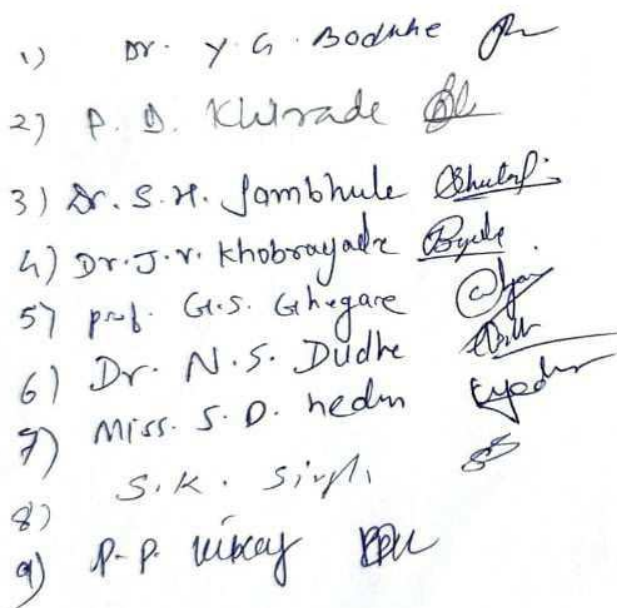 1) Dr. Y. G. Bodkhe
2) P. D. Khirade
3) Dr. S. H. Jambhule
4) Dr. J. V. Khobragade
5) Prof. G. S. Ghegare
6) Dr. N. S. Dudhe
7) Miss. S. D.
8) S. K. Singh
9) P. P.